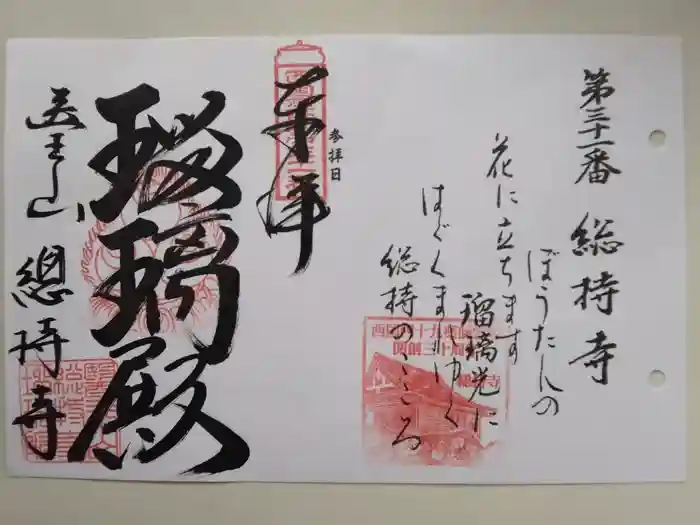 第三十一番 総持寺
ぼうたんの
花に立ちます
瑠璃光に
はぐくまれゆく
総持のこころ
奉拝
参拝日
瑠璃殿
医王山 總持寺